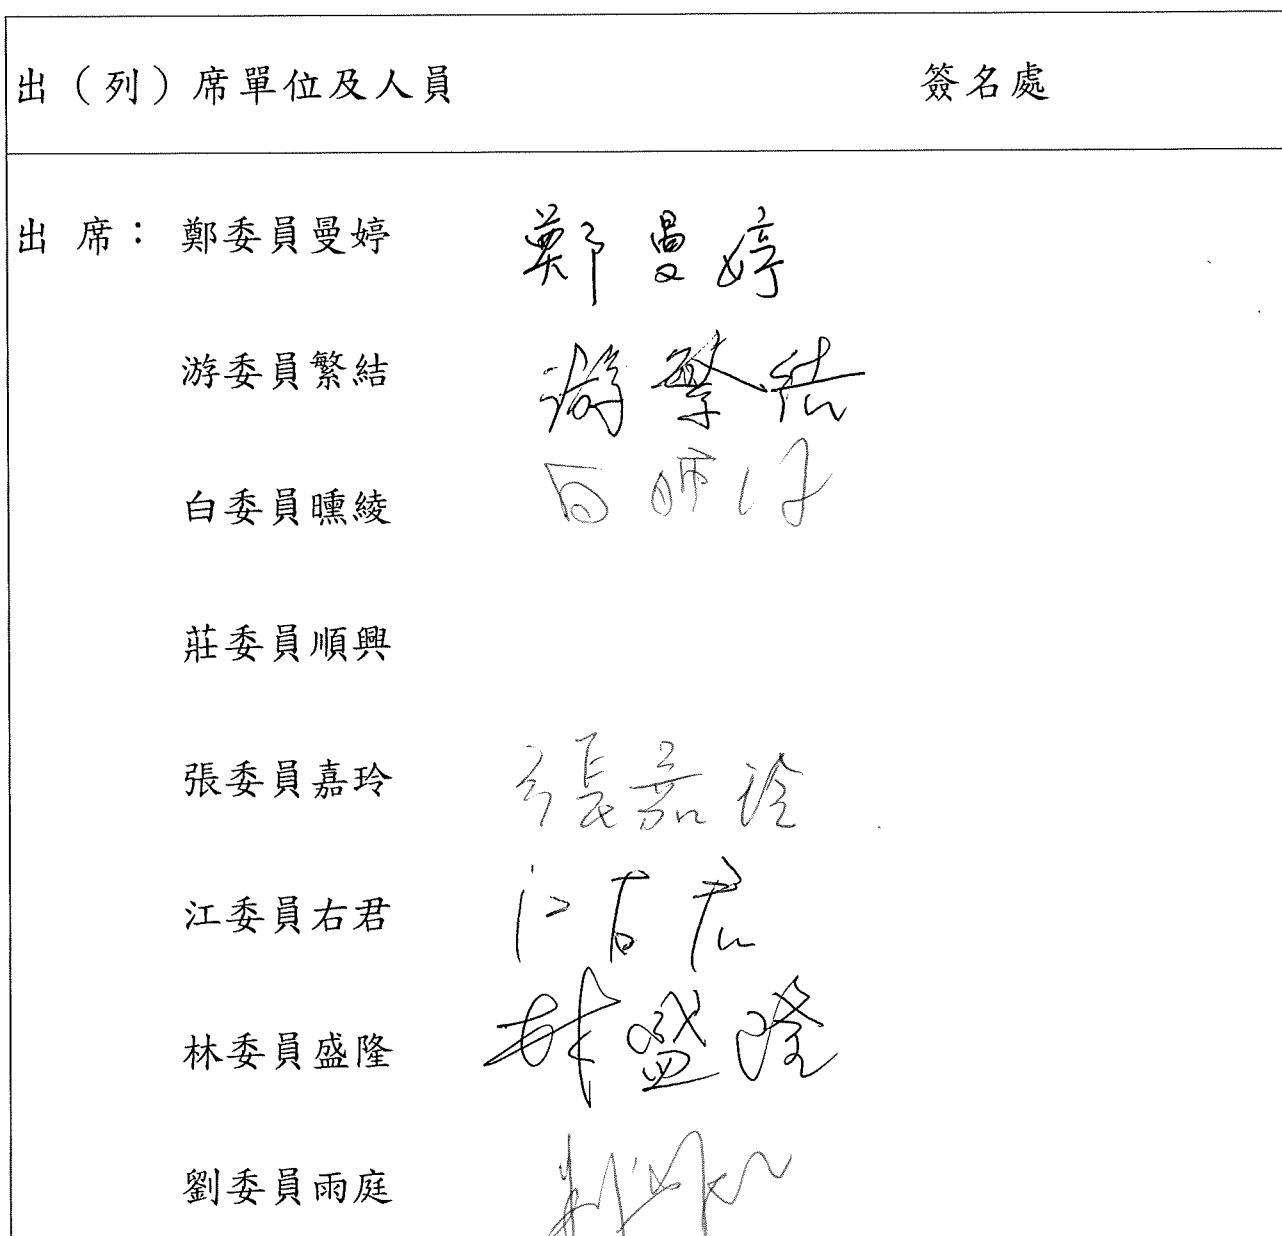 出（列）席單位及人員 簽名處
出 席： 鄭委員曼婷 鄭曼婷
游委員繁結 游繁結
白委員曛綾
莊委員順興
張委員嘉玲 張嘉玲
江委員右君 江右君
林委員盛隆 林盛隆
劉委員雨庭